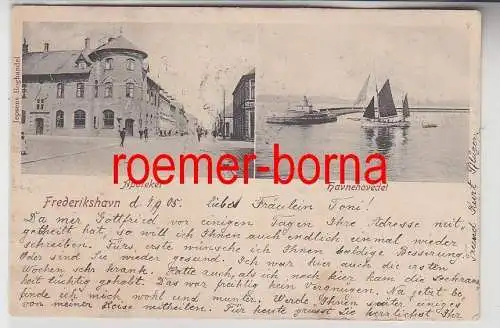 Jepsens Boghandel
roemer-borna
Apoteket
Havnehovedet
Frederikshavn d. 1/9 05. Liebes Fräulein Toni!
Da mir Gottfried vor einigen Tagen Ihre Adresse mit,
getheilt hat, so will ich Ihnen auch endlich einmal wieder
schreiben. Fürs, erste wünsche ich Ihnen baldige Besserung.
Oder sind Sie wieder gesund. Ich war hier auch die ersten
Wochen sehr krank. Hatte auch, als ich nach hier kam die
heit tüchtig gehabt. Das war freilig kein Vergnügen. Na jetzt be,
finde ich mich wohl und munter. Werde, Ihnen später einiges
von meiner Reise mitteilen. Für heute grüsst Sie herzlichst Ihr
Freund Kurt